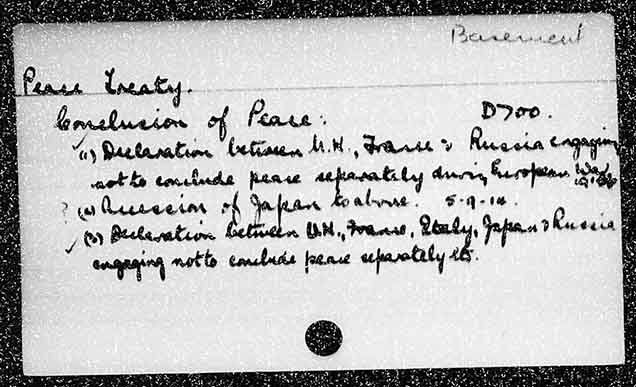 Basement
Peace Treaty.
Conclusion of Peace:
D700.
(1) Declaration between U.K., France & Russia engaging
not to conclude peace separately during European War
? (2) Accession of Japan to above. 5-9-14.
✓ (3) Declaration between U.K., France, Italy, Japan & Russia
engaging not to conclude peace separately etc.